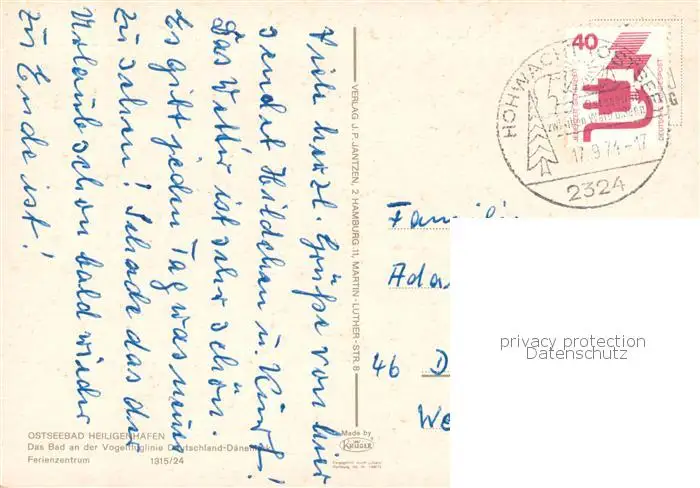 Viele herzl. Grüße von hier
sendet Hildchen u. Kurt!
Das Wetter ist sehr schön.
Es gibt jeden Tag was neues
zu sehen! Schade das der
Urlaub schon bald wieder
zu Ende ist!
VERLAG J. P. JANTZEN, 2 HAMBURG 11, MARTIN-LUTHER-STR. 8
40
DEUTSCHE BUNDESPOST
HOHWACHT (OSTSEE)
17.9.74-17
2324
Familie
Ada
46 D
We
privacy protection
Datenschutz
OSTSEEBAD HEILIGENHAFEN
Das Bad an der Vogelfluglinie Deutschland-Dänemark
Ferienzentrum 1315/24
Made by
KRÜGER